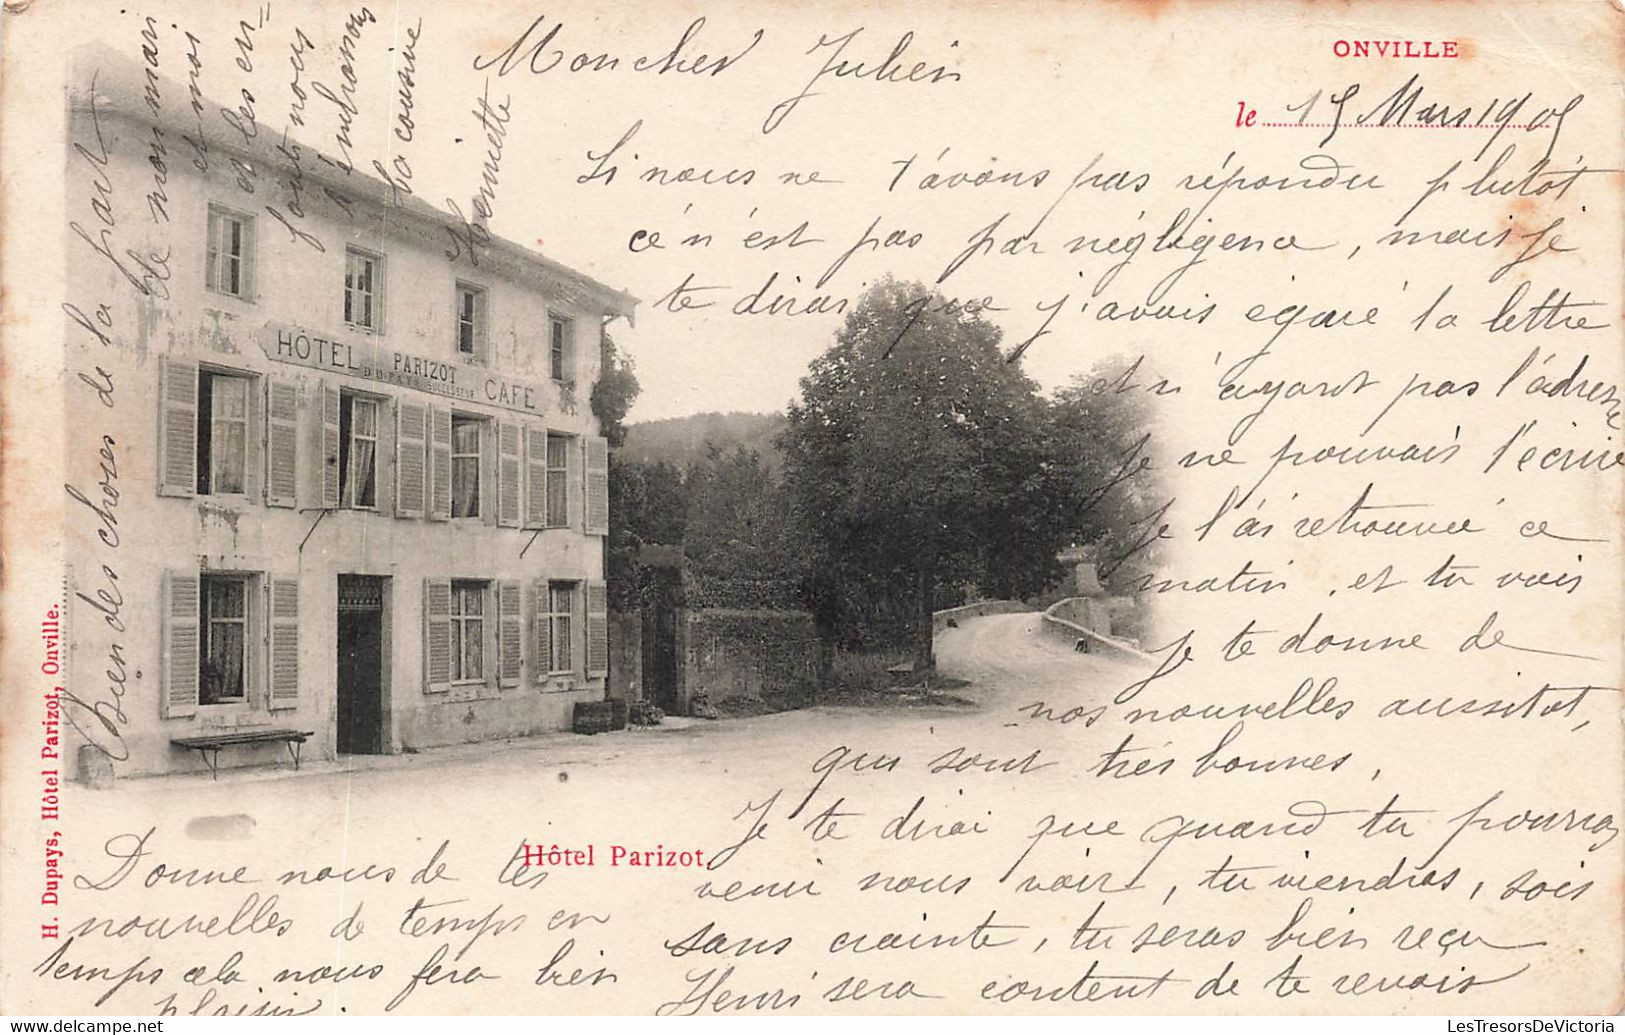 ONVILLE
le 15 Mars 1905
Mon cher Julien
Si nous ne t'avons pas répondu plutôt
cé n'ést pas par négligence, mais je
te dirai que j'avais égaré la lettre
et n'ayant pas l'adresse
je ne pouvais l'écrire
je l'ai retrouvé ce
matin, et tu vois
je te donne de
nos nouvelles aussitot,
qui sont trés bonnes,
Je te dirai que quand tu pourras
venir nous voir, tu viendras, sois
sans crainte, tu séras bien reçu
Henri sera content de te revoir
Donne nous de tes
nouvelles de temps en
temps cela nous fera bien
plaisir.
Bien des choses de la part
de mon mari
et moi
et les en=
fants nous
t'embrassons
ta cousine
Henriette
HÔTEL PARIZOT CAFE
DUPAYS SUCCESSEUR
Hôtel Parizot.
H. Dupays, Hôtel Parizot, Onville.
LesTresorsDeVictoria